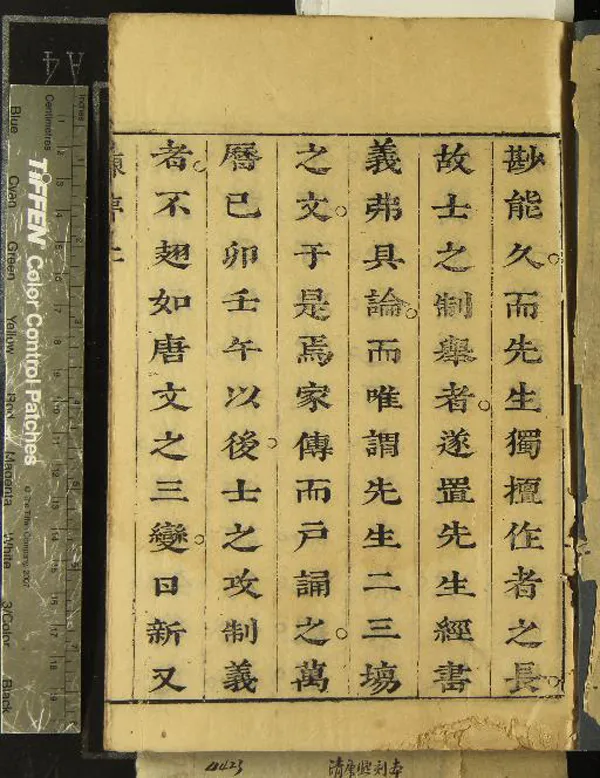 尠能久。而先生獨擅作者之長。
故士之制舉者。遂置先生經書
義弗具論。而唯謂先生二三塲
之文。于是焉家傳而戸誦之。萬
曆已卯壬午以後。士之攻制義
者。不翅如唐文之三變。日新又
4423
清康熙刻本
A4
Inches
Centimetres
TIFFEN Color Control Patches
© The Tiffen Company, 2007
Blue
Cyan
Green
Yellow
Red
Magenta
White
3/Color
Black